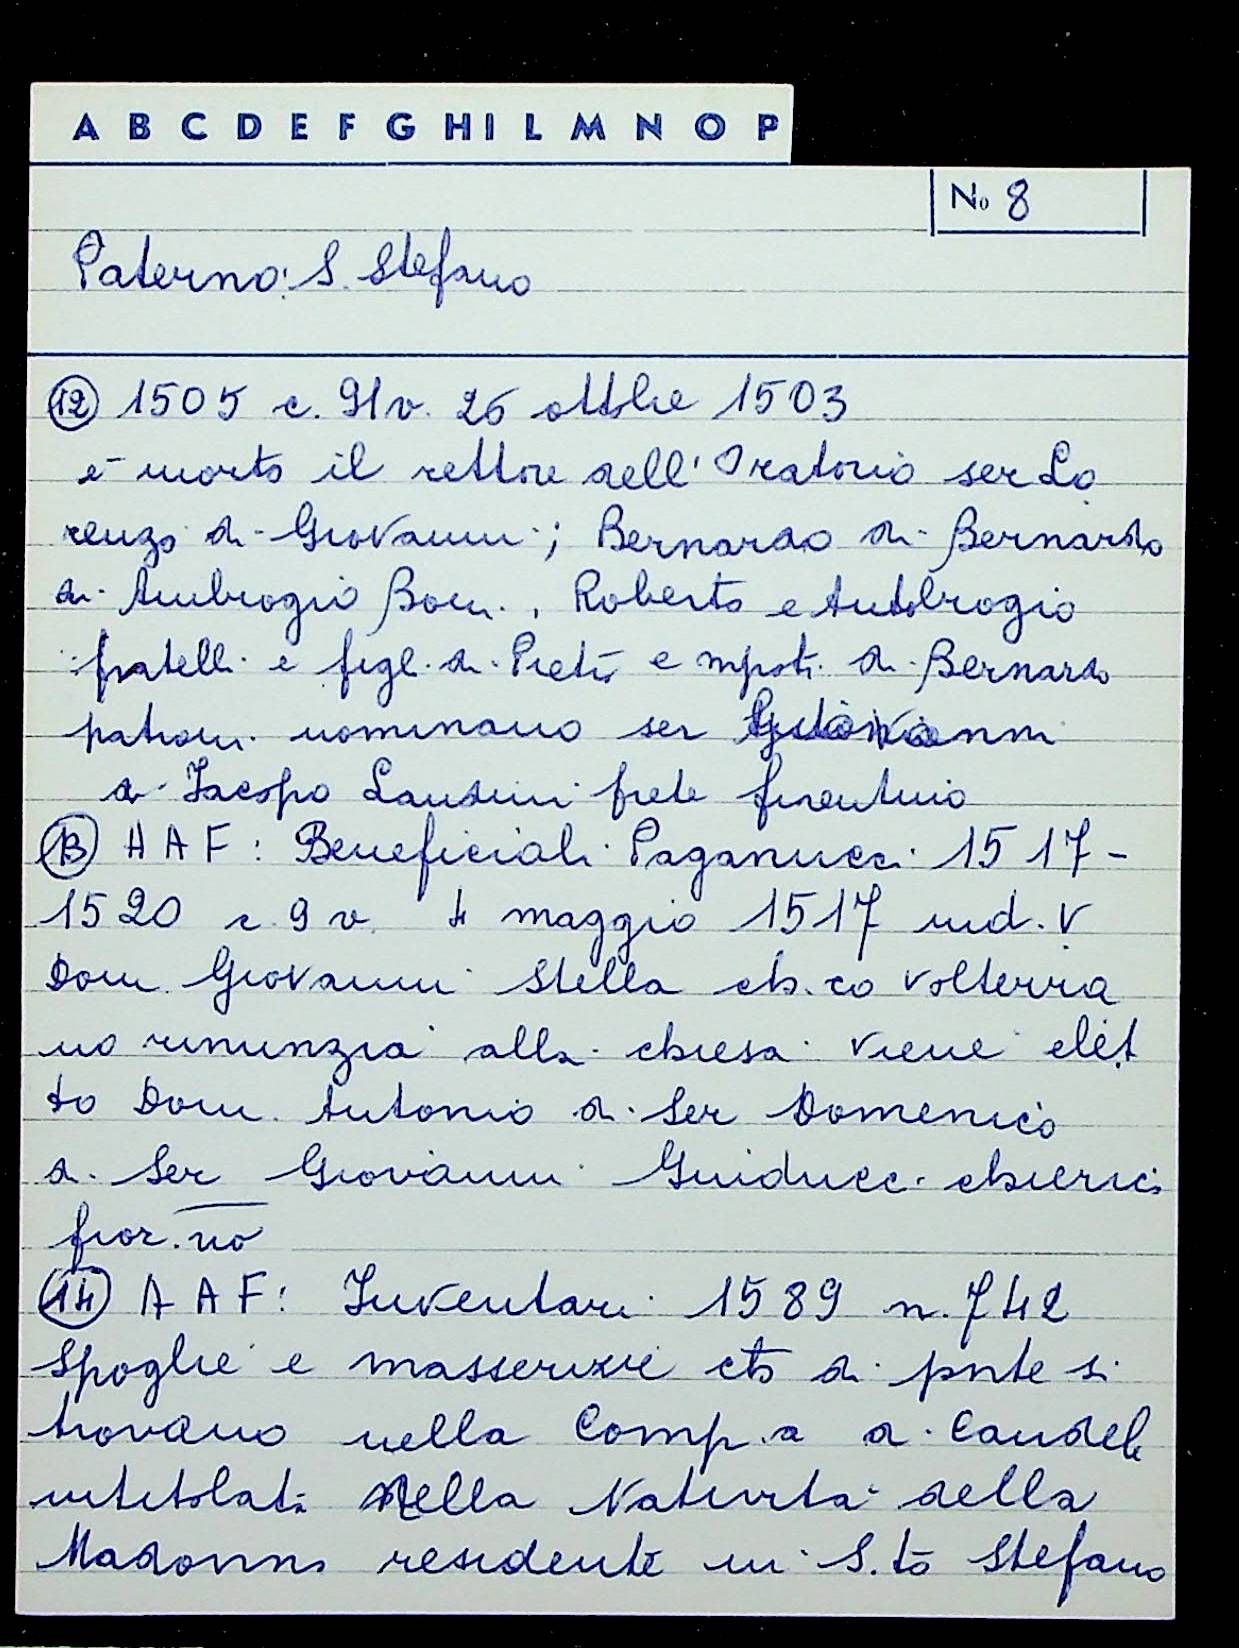 A B C D E F G H I L M N O P
No 8
Paterno: S. Stefano
12 1505 c. 91v. 26 ottobre 1503
è morto il rettore dell'Oratorio ser Lo
renzo di Giovanni; Bernardo di Bernardo
di Ambrogio Bocci, Roberto e Ambrogio
fratelli e figli di Pietro e nipoti di Bernardo
patroni nominano ser Giovanni
di Jacopo Landini prete fiorentino
13 AAF: Beneficiali Paganucci 1517-
1520 c. 9 v. 4 maggio 1517 ind. V
Dom Giovanni Stella ch.co volterra
no rinunzia alla chiesa viene elet
to Dom. Antonio di Ser Domenico
di Ser Giovanni Guiducci chierici
fior.no
14 AAF: Inventari 1589 n. 742
Spoglie e masserizie che di pnte si
trovano nella Comp.a di Candeli
intitolata nella Natività della
Madonna residente in S.to Stefano